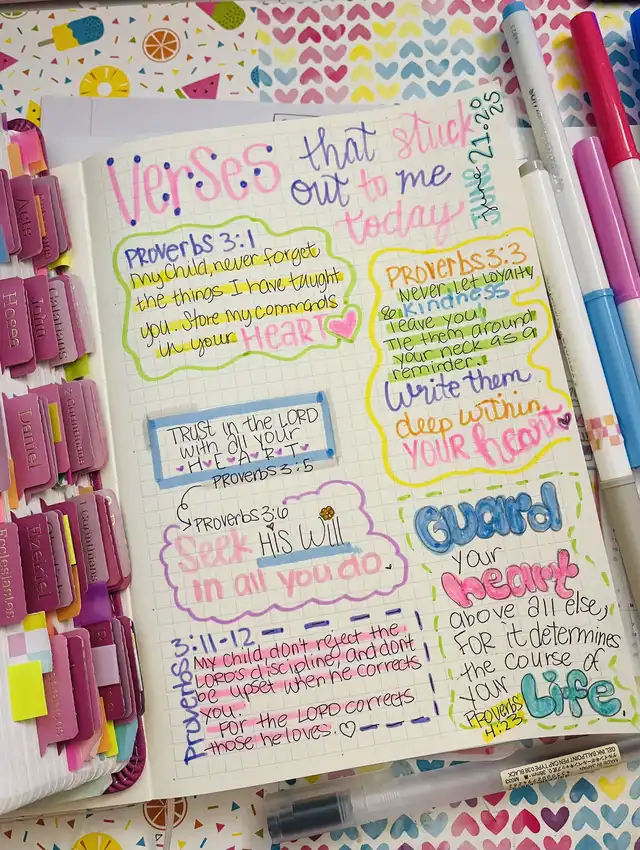 Verses that stuck
out to me
today
June 21. 2025
Proverbs 3:1
My child, never forget
the things I have taught
you. Store my commands
in your HEART
PROVERBS 3:3
Never let loyalty
& kindness
leave you!
Tie them around
your neck as a
reminder.
Write them
deep within
YOUR heart
TRUST in the LORD
with all your
H E A R T
Proverbs 3:5
Proverbs 3:6
Seek His Will
in all you do
Proverbs 3:11-12
My Child, don't reject the
LORD'S discipline, and don't
be upset when he corrects
you.
For the LORD corrects
those he loves.
GUARD
your
heart
above all else,
FOR it determines
the course of
your Life.
Proverbs
4:23
Acts
Hosea
Daniel
Ezekiel
Ecclesiastes
MADE IN JAPAN
GEL INK BALLPOINT PEN CAP TYPE 0.38 BLACK